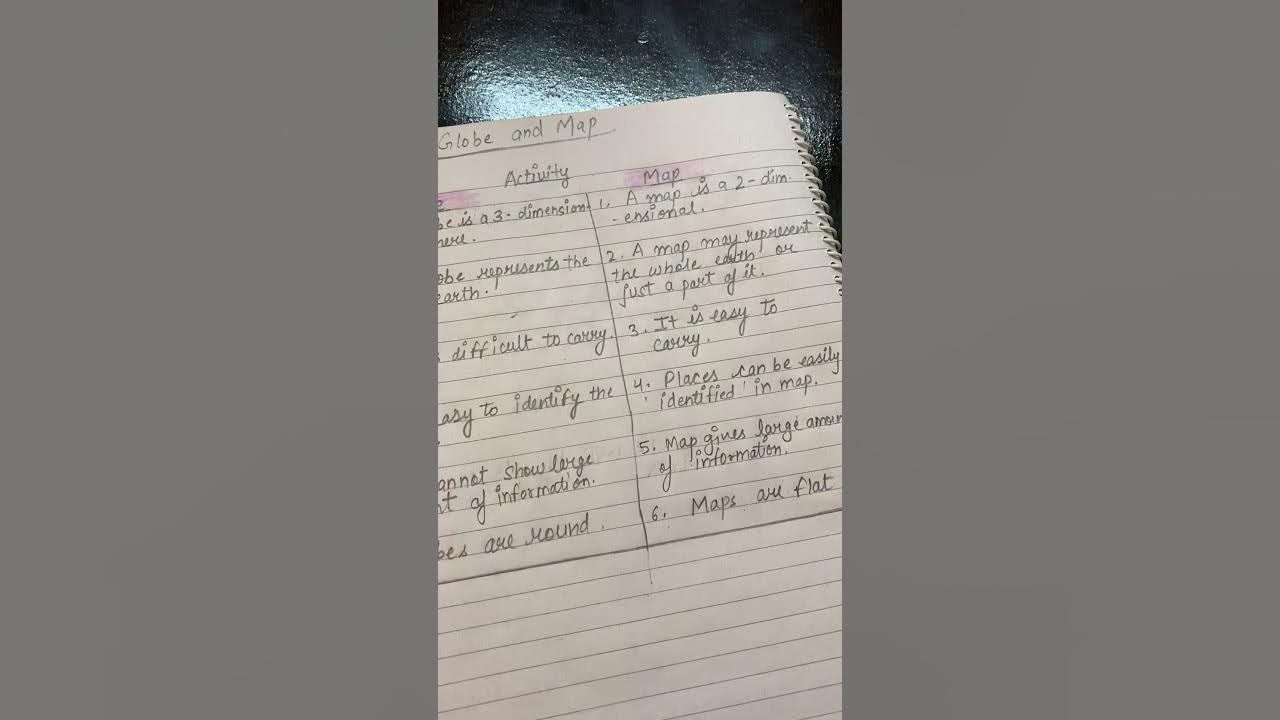 Globe and Map
Activity
Map
is a 3-dimension
1. A map is a 2-dim-
-ensional.
represents the
2. A map may represent
the whole earth or
just a part of it.
difficult to carry.
3. It is easy to
carry.
to identify the
4. Places can be easily
identified in map.
show large
of information.
5. Map gives large
of information.
are round.
6. Maps are flat